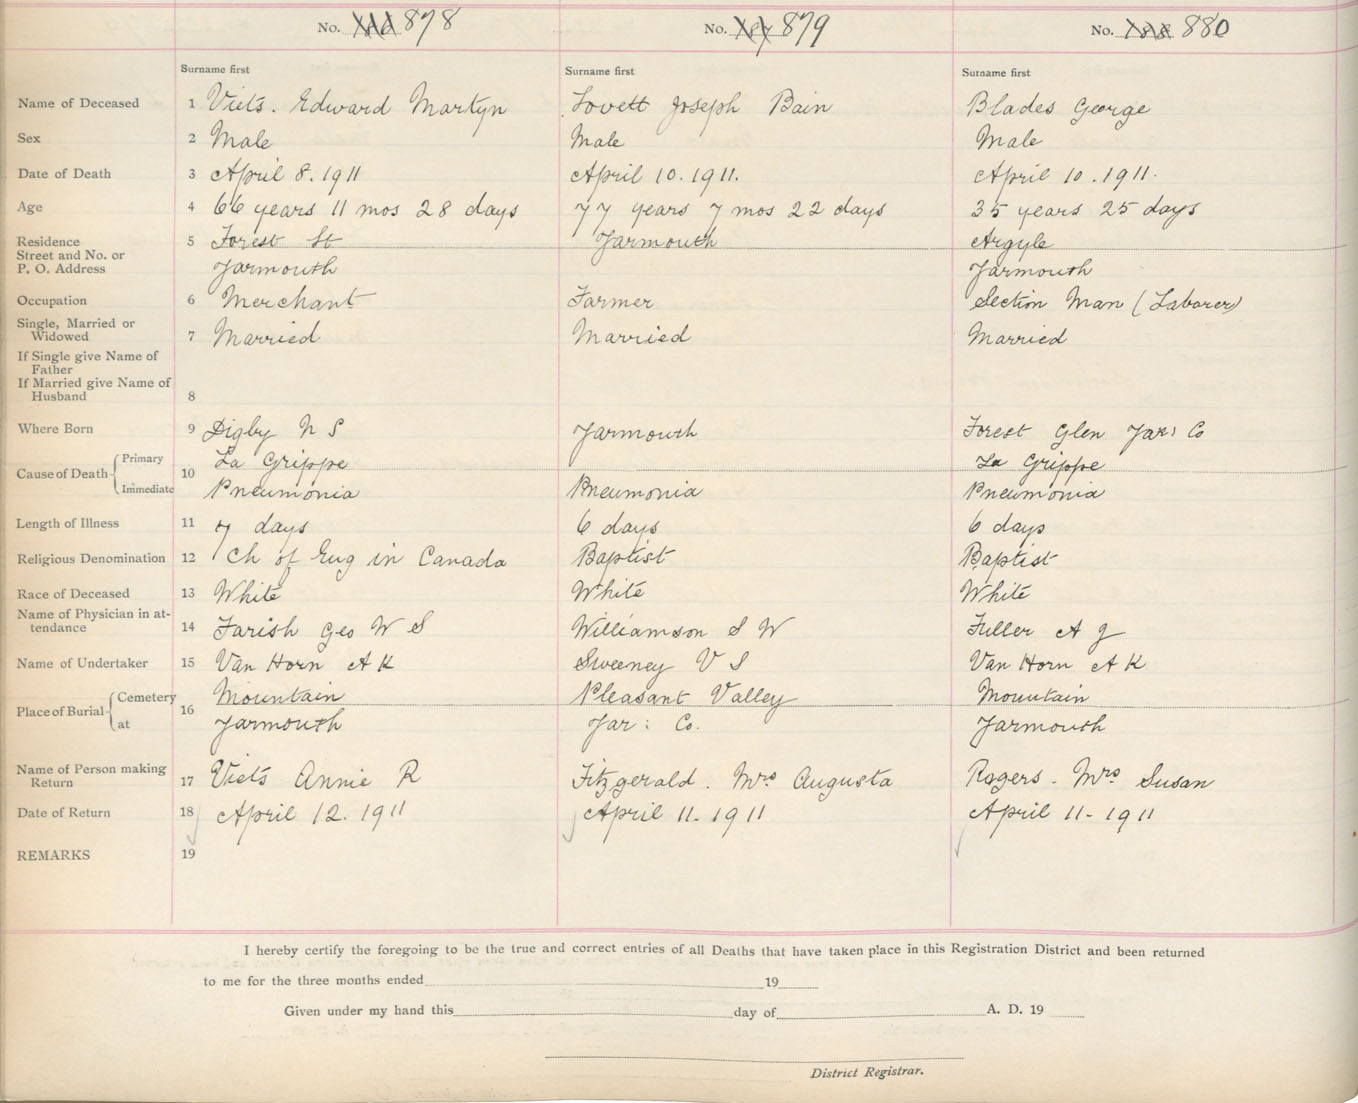 No. 878 No. 879 No. 880
Surname first Surname first Surname first
Name of Deceased 1 Viets. Edward Martyn Lovett Joseph Bain Blades George
Sex 2 Male Male Male
Date of Death 3 April 8. 1911 April 10. 1911. April 10. 1911.
Age 4 66 years 11 mos 28 days 77 years 7 mos 22 days 35 years 25 days
Residence 5 Forest St Yarmouth Argyle
Street and No. or
P. O. Address Yarmouth Yarmouth
Occupation 6 Merchant Farmer Section Man (Laborer)
Single, Married or
Widowed 7 Married Married Married
If Single give Name of
Father
If Married give Name of
Husband 8
Where Born 9 Digby N S Yarmouth Forest Glen Yar: Co
Cause of Death 10
Primary La Grippe La Grippe
Immediate Pneumonia Pneumonia Pneumonia
Length of Illness 11 7 days 6 days 6 days
Religious Denomination 12 Ch of Eng in Canada Baptist Baptist
Race of Deceased 13 White White White
Name of Physician in at-
tendance 14 Farish Geo W S Williamson S W Fuller A J
Name of Undertaker 15 Van Horn A K Sweeney V S Van Horn A K
Place of Burial 16
Cemetery Mountain Pleasant Valley Mountain
at Yarmouth Yar: Co. Yarmouth
Name of Person making
Return 17 Viets Annie R Fitzgerald. Mrs Augusta Rogers. Mrs Susan
Date of Return 18 April 12. 1911 April 11. 1911 April 11. 1911
REMARKS 19
I hereby certify the foregoing to be the true and correct entries of all Deaths that have taken place in this Registration District and been returned
to me for the three months ended 19
Given under my hand this day of A. D. 19
District Registrar.